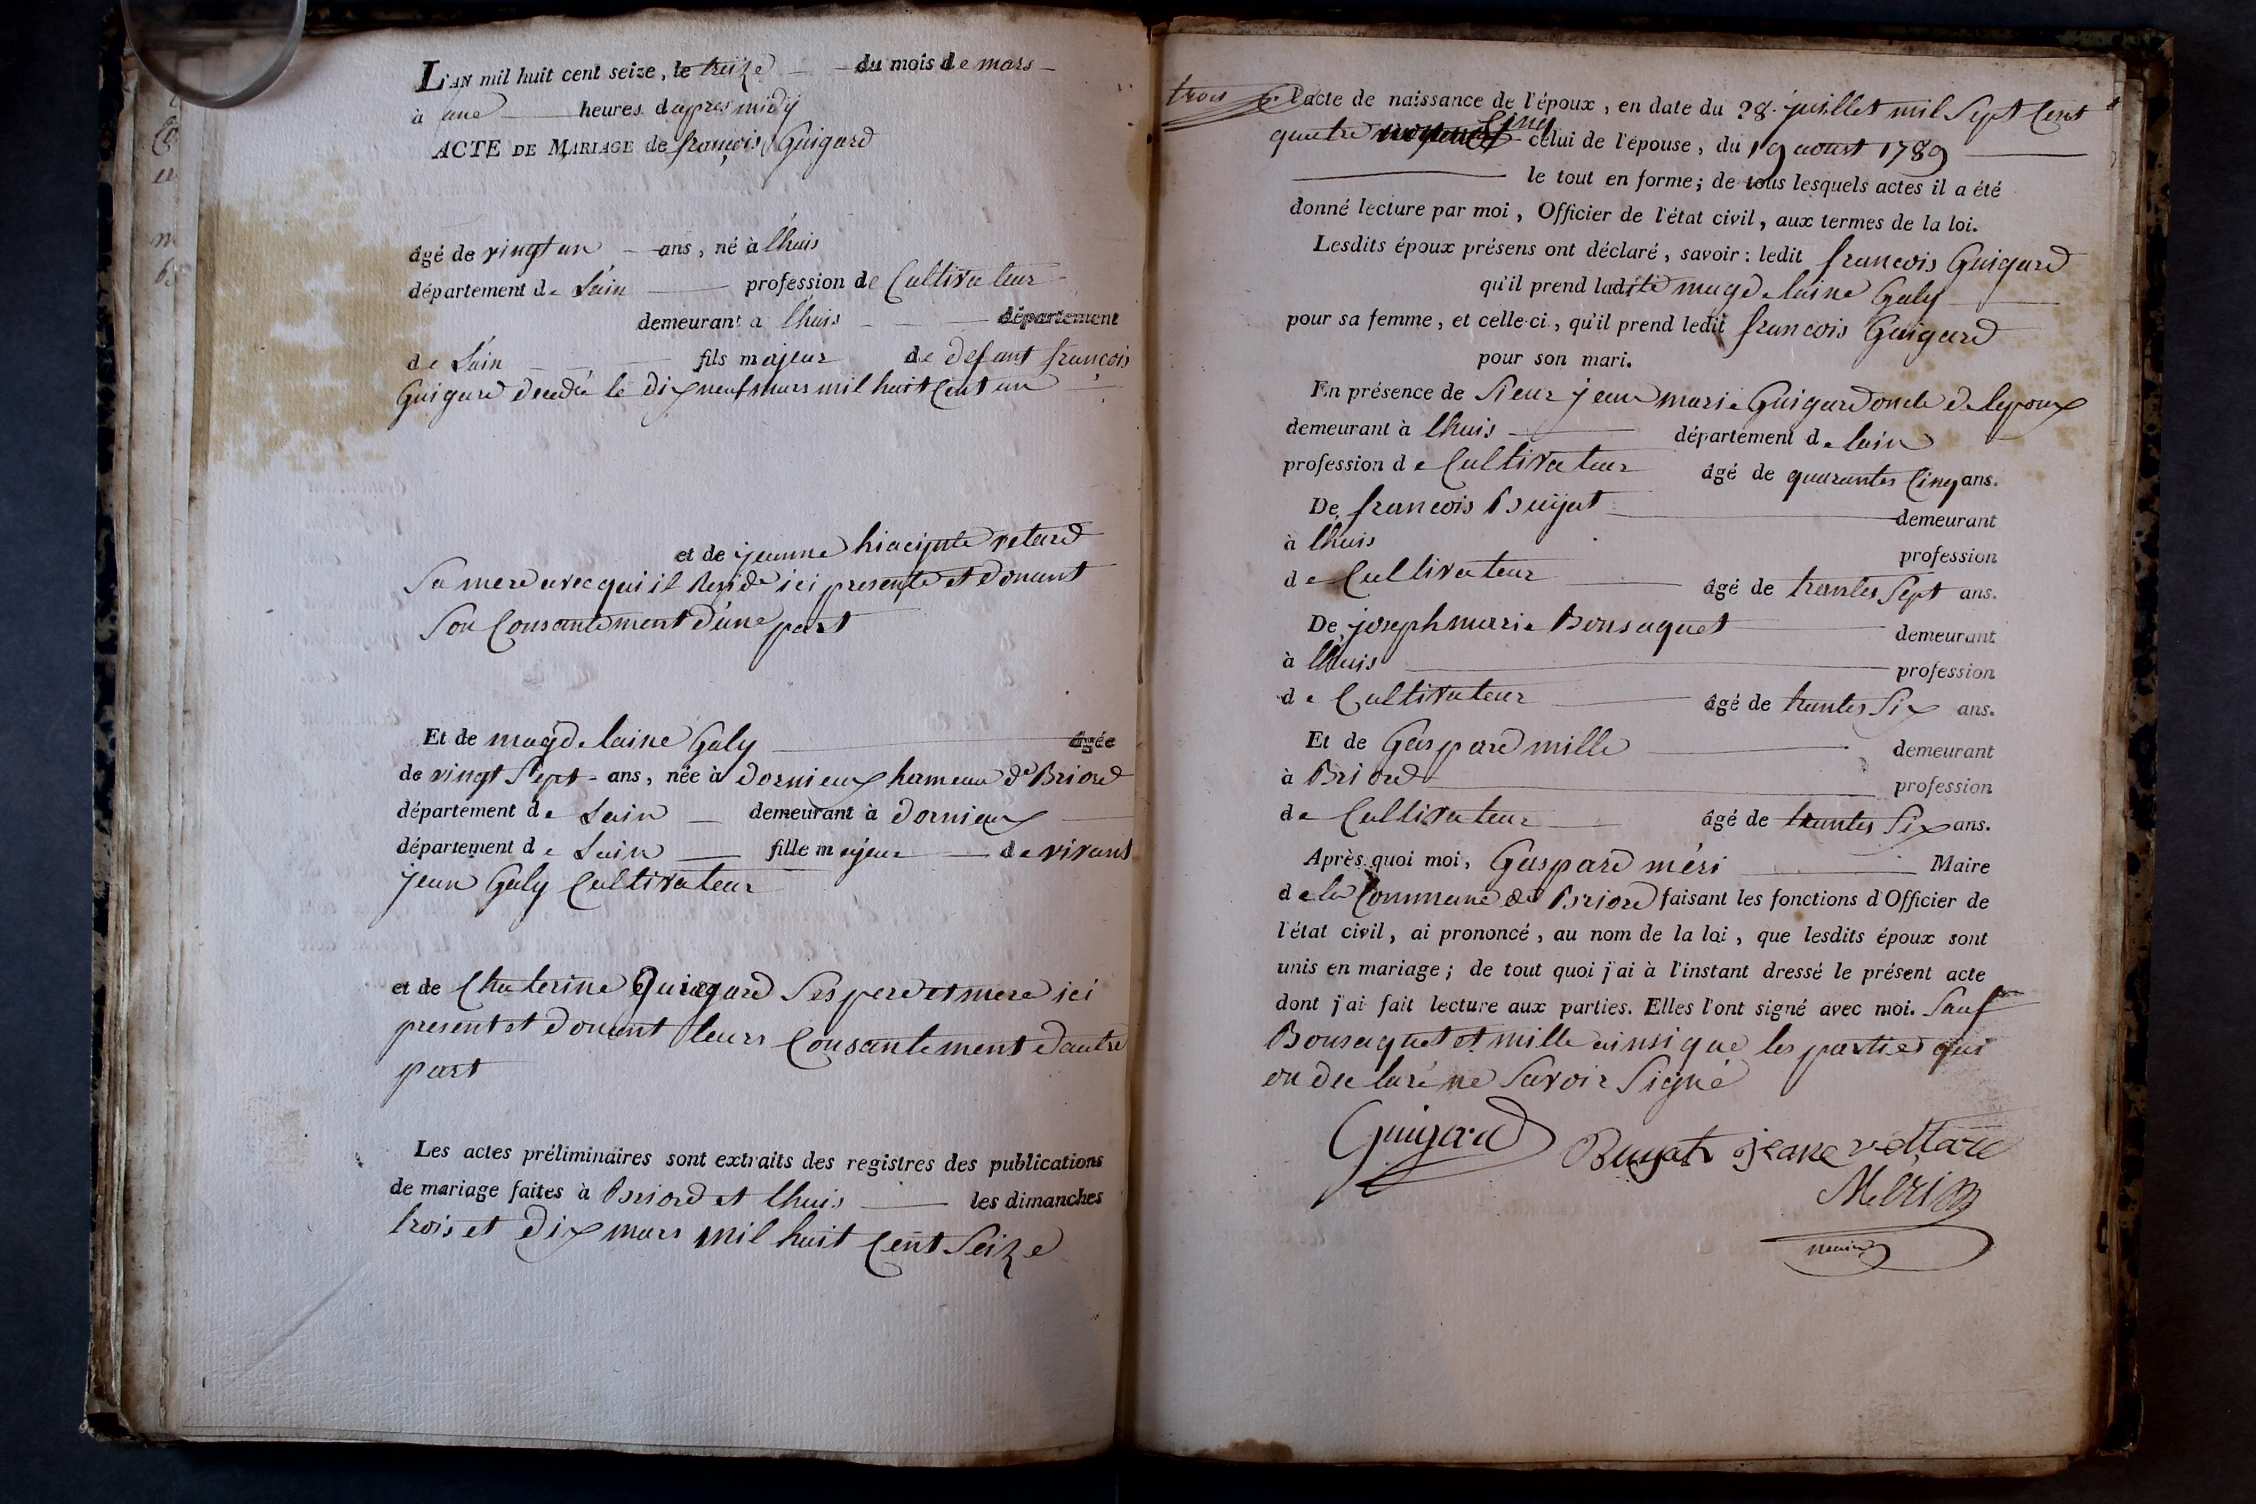 L'AN mil huit cent seize, le treize du mois de mars
à une heures d'apres midÿ
ACTE DE MARIAGE de françois Guigard
âgé de vingt un ans, né à lhuis
département de Lain profession de Cultivateur
demeurant à lhuis département
de Lain fils majeur de defunt françois
Guigard decedé le dix neuf mars mil huit Cent un
et de jeanne hiacinte vetard
Sa mere avec qui il Reside ici presente et donant
Son Consantement d'une part
Et de magdelaine Galy âgée
de vingt Sept ans, née à dornieux hameau de Briord
département de Lain demeurant à dornieux
département de Lain fille majeur de vivans
jean Galy Cultivateur
et de Chaterine Guigard Ses pere et mere ici
present et donant leurs Consantement d'autre
part
Les actes préliminaires sont extraits des registres des publications
de mariage faites à Briord et lhuis les dimanches
trois et dix mars mil huit Cent Seize
trois
l'acte de naissance de l'époux, en date du 28 juillet mil Sept Cent
quatre celui de l'épouse, du 19 aoust 1789
le tout en forme; de tous lesquels actes il a été
donné lecture par moi, Officier de l'état civil, aux termes de la loi.
Lesdits époux présens ont déclaré, savoir: ledit francois Guigard
qu'il prend ladite magdelaine Galy
pour sa femme, et celle-ci, qu'il prend ledit francois Guigard
pour son mari.
En présence de Sieur jean marie Guigard oncle de lepoux
demeurant à lhuis département de lain
profession de Cultivateur âgé de quarantes Cinq ans.
De francois Buijat demeurant
à lhuis profession
de Cultivateur âgé de trantes Sept ans.
De joseph marie Bonsaquet demeurant
à lhuis profession
de Cultivateur âgé de trantes Six ans.
Et de Gaspard mille demeurant
à Briord profession
de Cultivateur âgé de trantes Six ans.
Après quoi moi, Gaspard méri Maire
de la Commune de Briord faisant les fonctions d'Officier de
l'état civil, ai prononcé, au nom de la loi, que lesdits époux sont
unis en mariage; de tout quoi j'ai à l'instant dressé le présent acte
dont j'ai fait lecture aux parties. Elles l'ont signé avec moi. Sauf
Bonsaquet et mille ainsi que les parties qui
on declaré ne Savoir Signé
Guigard
Buijat jeane vettard
Méri
maire